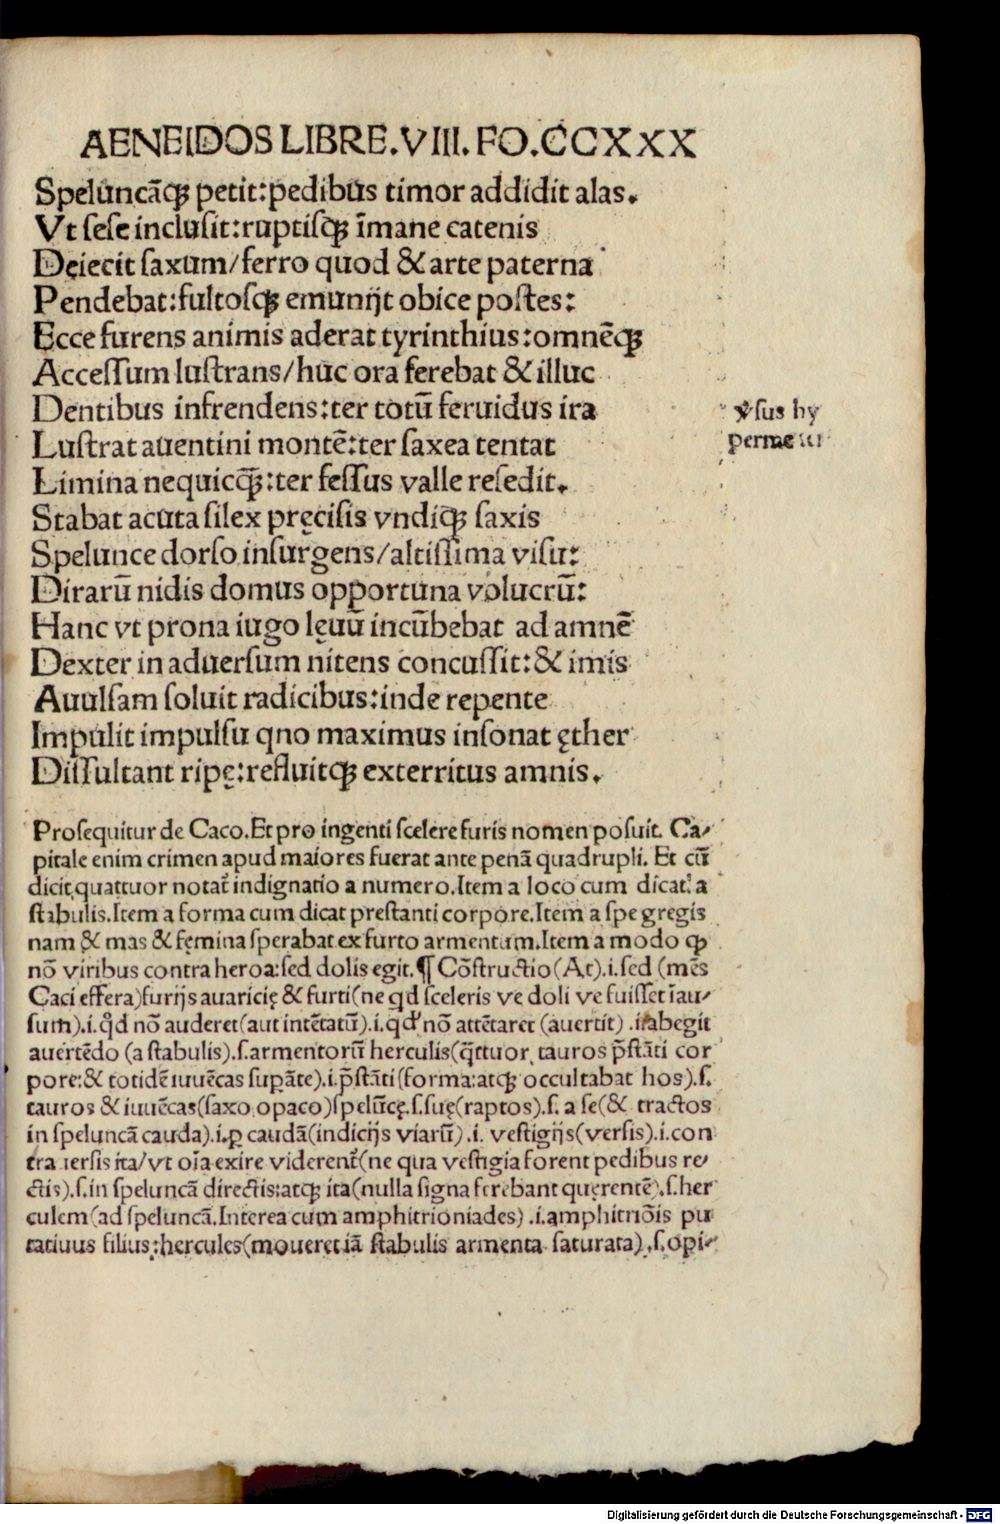 AENEIDOS LIBRE.VIII.FO.CCXXX
Speluncāqꝫ petit:pedibus timor addidit alas.
Vt sese inclusit:ruptisqꝫ īmane catenis
Deiecit saxum/ferro quod & arte paterna
Pendebat:fultosqꝫ emunijt obice postes:
Ecce furens animis aderat tyrinthius:omnēqꝫ
Accessum lustrans/huc ora ferebat & illuc
Dentibus infrendens:ter totū feruidus ira
Lustrat auentini montē:ter saxea tentat
Limina nequicqꝫ̄:ter fessus valle resedit.
Stabat acuta silex pręcisis vndiqꝫ saxis
Spelunce dorso insurgens/altissima visu:
Dirarū nidis domus opportuna volucrū:
Hanc vt prona iugo lęuū incūbebat ad amnē
Dexter in aduersum nitens concussit:& imis
Auulsam soluit radicibus:inde repente
Impulit impulsu qno maximus insonat ęther
Dissultant ripę:refluitqꝫ exterritus amnis.
v̓sus hy
perme
Prosequitur de Caco.Et pro ingenti scelere furis nomen posuit. Ca/
pitale enim crimen apud maiores fuerat ante penā quadrupli. Et cū
dicit quattuor notat̄ indignatio a numero.Item a loco cum dicat: a
stabulis.Item a forma cum dicat prestanti corpore.Item a spe gregis
nam & mas & fęmina sperabat ex furto armentum.Item a modo qꝫ
nō viribus contra heroa:sed dolis egit.¶ Cōstructio(At).i.sed (mēs
Caci effera)furijs auaricię & furti(ne qd sceleris ve doli ve fuisset īau/
sum).i.qd̓ nō auderet(aut intētatū).i.qd̓ nō attētaret (auertit) .i.abegit
auertēdo (a stabulis).s.armentorū herculis(q̄ttuor tauros p̄stāti cor
pore:& totidē iuuēcas supāte).i.p̄stāti(forma:atqꝫ occultabat hos).s.
tauros & iuuēcas(saxo opaco)spelūcę.s.suę(raptos).s. a se(& tractos
in speluncā cauda).i.ꝑ caudā(indicijs viarū).i. vestigijs(versis).i.con
tra versis ita/vt oīa exire viderent̄(ne qua vestigia forent pedibus re/
ctis).s.in speluncā directis:atqꝫ ita(nulla signa ferebant quęrentē).s.her
culem(ad speluncā.Interea cum amphitrioniades) .i.amphitriōis pu
tatiuus filius:hercules(moueret iā stabulis armenta saturata).s.opi/
Digitalisierung gefördert durch die Deutsche Forschungsgemeinschaft - DFG